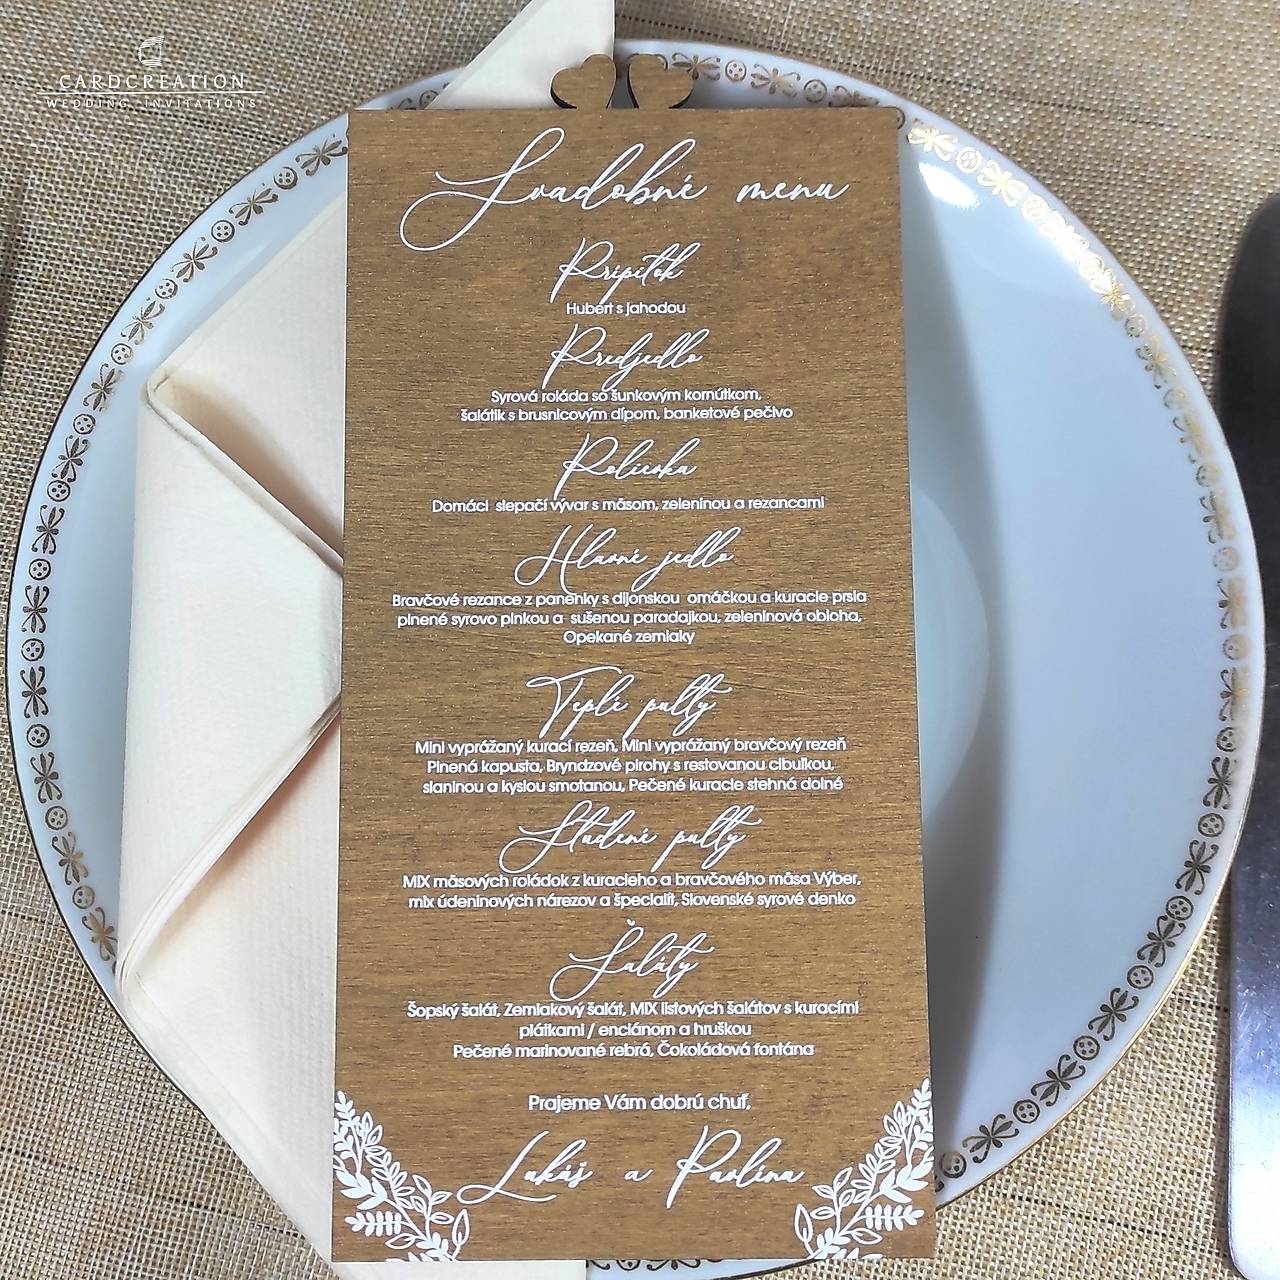 CARDCREATION
WEDDING INVITATIONS
Svadobné menu
Prípitok
Hubert s jahodou
Predjedlo
Syrová roláda so šunkovým kornútkom,
šalátik s brusnicovým dipom, banketové pečivo
Polievka
Domáci slepačí vývar s mäsom, zeleninou a rezancami
Hlavné jedlo
Bravčové rezance z panenky s dijonskou omáčkou a kuracie prsia
plnené syrovo pinkou a sušenou paradajkou, zeleninová obloha,
Opekané zemiaky
Teplé pulty
Mini vyprážaný kurací rezeň, Mini vyprážaný bravčový rezeň
Plnená kapusta, Bryndzové pirohy s restovanou cibuľkou,
slaninou a kyslou smotanou, Pečené kuracie stehná dolné
Studené pulty
MIX mäsových roládok z kuracieho a bravčového mäsa Výber,
mix údeninových nárezov a špecialít, Slovenské syrové denko
Šaláty
Šopský šalát, Zemiakový šalát, MIX listových šalátov s kuracími
plátkami / enciánom a hruškou
Pečené marinované rebrá, Čokoládová fontána
Prajeme Vám dobrú chuť,
Lukáš a Pavlína